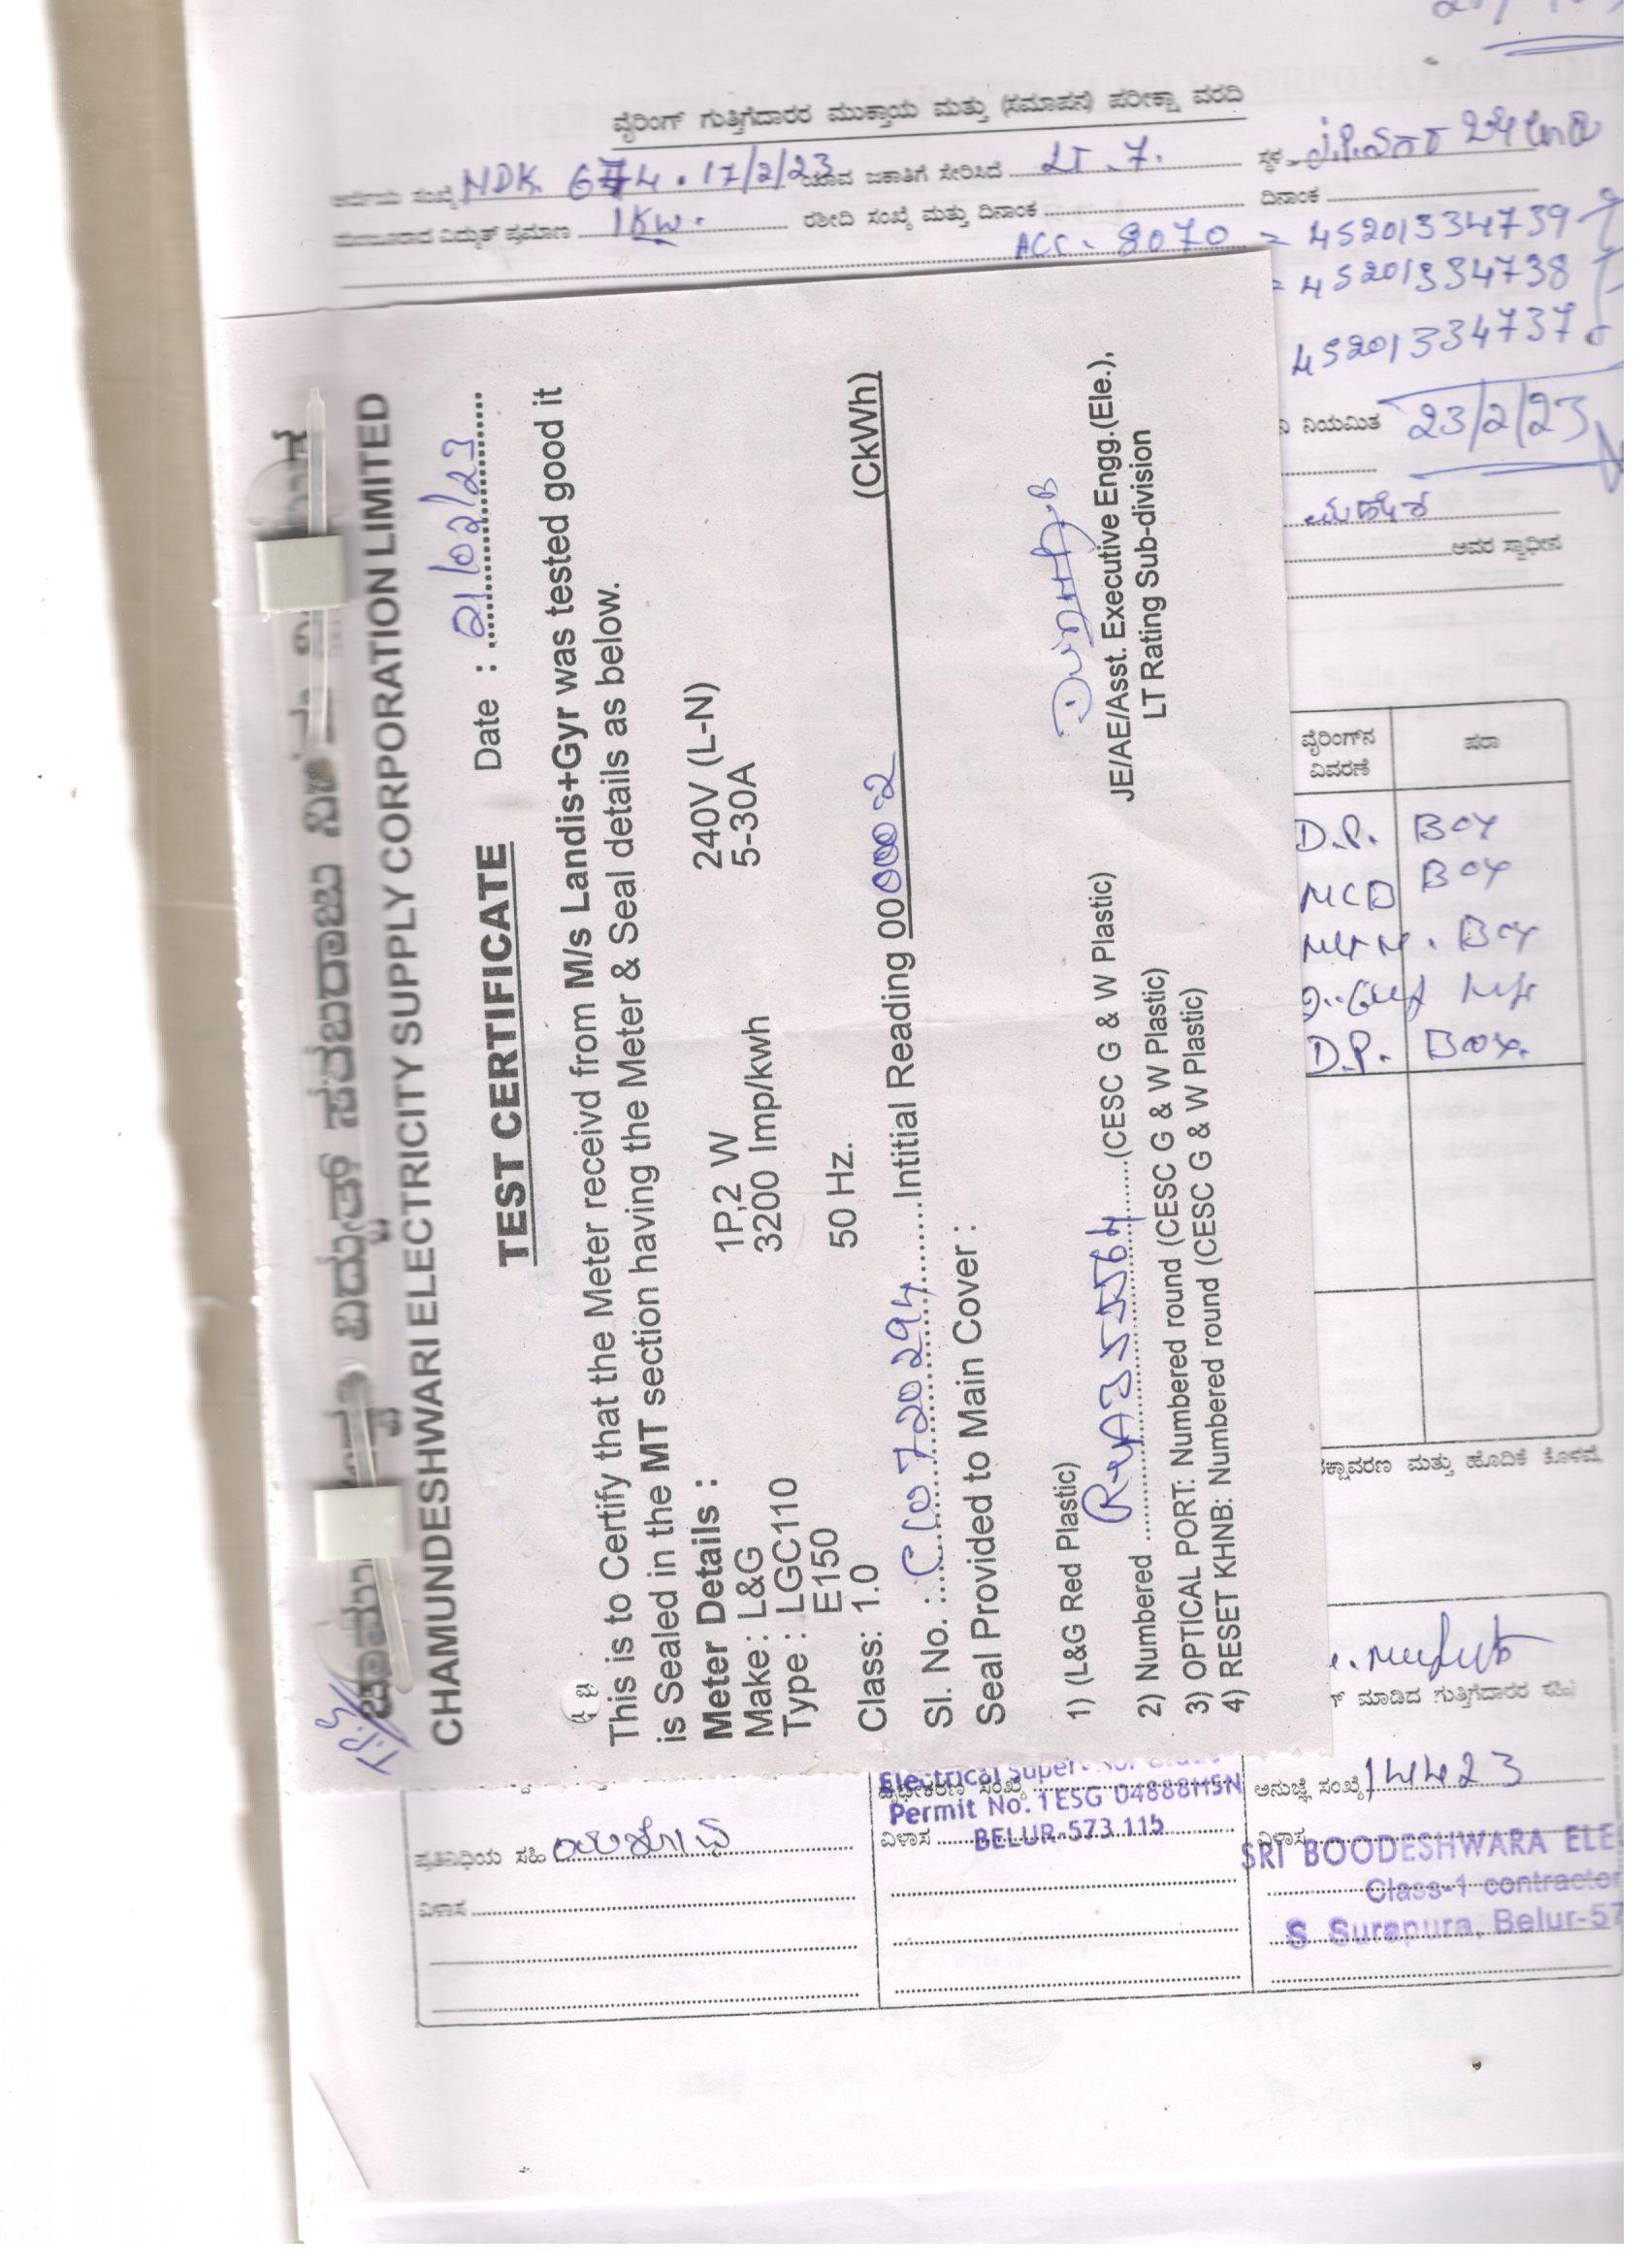 ವೈರಿಂಗ್ ಗುತ್ತಿಗೆದಾರರ ಮುಕ್ತಾಯ ಮತ್ತು (ಸಮಾಪನ) ಪರೀಕ್ಷಾ ವರದಿ
ಸಂಖ್ಯೆ NDK 674. 17/2/23 ಯಾವ ಜಕಾತಿಗೆ ಸೇರಿಸಿದೆ LT. 7. ಸ್ಥಳ
ವಿದ್ಯುತ್ ಪ್ರಮಾಣ 1KW. ರಶೀದಿ ಸಂಖ್ಯೆ ಮತ್ತು ದಿನಾಂಕ ದಿನಾಂಕ
ACC. 8070 = 45201334739
= 45201334738
45201334737
ನಿಯಮಿತ 23/2/23
ಅವರ ಸ್ವಾಧೀನ
ವಿದ್ಯುತ್ ಸರಬರಾಜು
CHAMUNDESHWARI ELECTRICITY SUPPLY CORPORATION LIMITED
TEST CERTIFICATE Date : 21/02/23
This is to Certify that the Meter receivd from M/s Landis+Gyr was tested good it
is Sealed in the MT section having the Meter & Seal details as below.
Meter Details :
Make : L&G 1P,2 W 240V (L-N)
Type : LGC110 3200 Imp/kwh 5-30A
E150
Class: 1.0 50 Hz.
Sl. No. : C10720294 Intitial Reading 00 000 2 (CkWh)
Seal Provided to Main Cover :
1) (L&G Red Plastic)
2) Numbered (CESC G & W Plastic)
3) OPTICAL PORT: Numbered round (CESC G & W Plastic)
4) RESET KHNB: Numbered round (CESC G & W Plastic)
JE/AE/Asst. Executive Engg.(Ele.),
LT Rating Sub-division
ವೈರಿಂಗ್‌ನ ವಿವರಣೆ ಷರಾ
D.P. Box
MCB Box
Box
D.P. Box.
ಮತ್ತು ಹೊದಿಕೆ ಕೊಳವೆ
ಮಾಡಿದ ಗುತ್ತಿಗೆದಾರರ ಸಹಿ
ಪ್ರತಿನಿಧಿಯ ಸಹಿ
ವಿಳಾಸ
Electrical
Permit No. 1ESG 04888HSN
ವಿಳಾಸ
BELUR-573 115
ಅನುಜ್ಞೆ ಸಂಖ್ಯೆ 14423
ವಿಳಾಸ
SRI BOODESHWARA ELE
Class-1 contractor
S Surapura, Belur-57